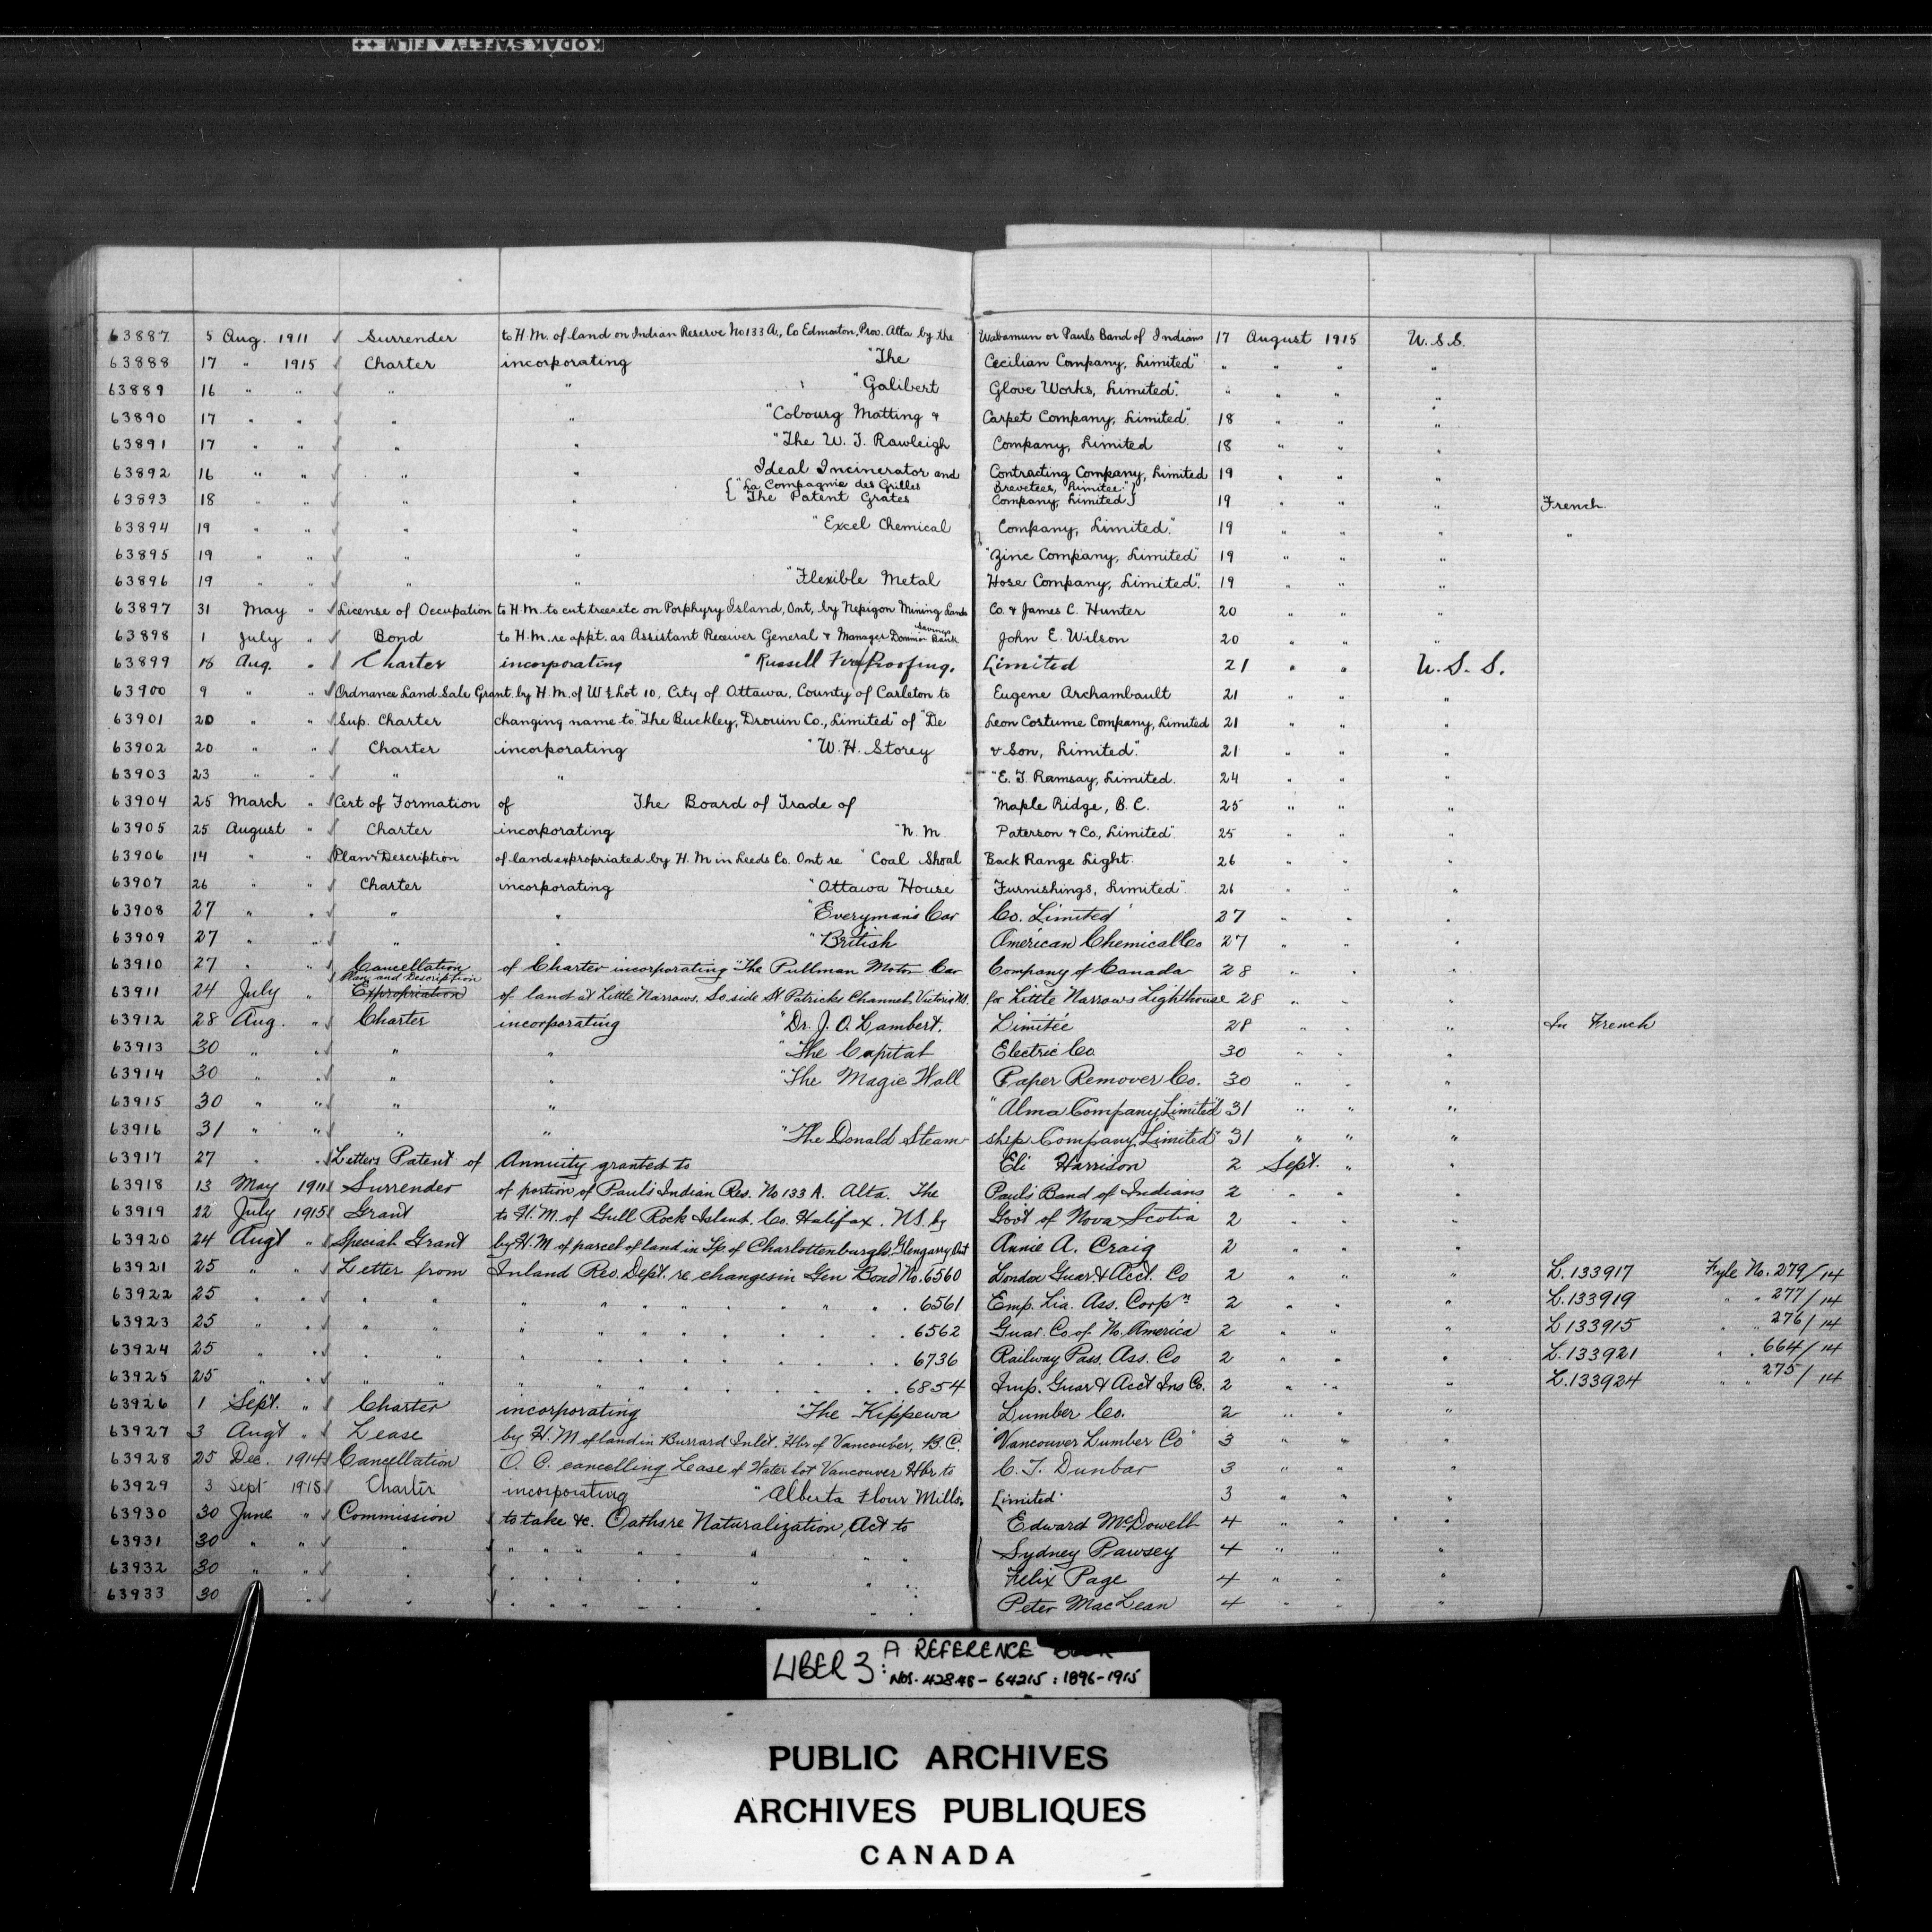 KODAK SAFETY FILM ++
63887 5 Aug. 1911 Surrender to H.M. of land on Indian Reserve No 133 A., Co Edmonton, Prov. Alta by the Wabamun or Pauls Band of Indians 17 August 1915 U.S.S.
63888 17 " 1915 Charter incorporating "The Cecilian Company, Limited" " " " "
63889 16 " " " " "Galibert Glove Works, Limited". " " " "
63890 17 " " " " "Cobourg Matting & Carpet Company, Limited". 18 " " "
63891 17 " " " " "The W. T. Rawleigh Company, Limited 18 " " "
63892 16 " " " " Ideal Incinerator and Contracting Company, Limited 19 " " "
{ "La Compagnie des Grilles Brevetees, Limitee." }
63893 18 " " " " { The Patent Grates Company, Limited } 19 " " " French.
63894 19 " " " " "Excel Chemical Company, Limited." 19 " " " "
63895 19 " " " " "Zinc Company, Limited" 19 " " "
63896 19 " " " " "Flexible Metal Hose Company, Limited". 19 " " "
63897 31 May " License of Occupation to H.M. to cut trees etc on Porphyry Island, Ont, by Nepigon Mining Lands Co. & James C. Hunter 20 " " "
63898 1 July " Bond to H.M. re appt. as Assistant Receiver General & Manager Domin Savings Bank John E. Wilson 20 " " "
63899 18 Aug. " Charter incorporating "Russell Fireproofing. Limited 21 " " U.S.S.
63900 9 " " Ordnance Land Sale Grant by H.M. of W ½ Lot 10, City of Ottawa, County of Carleton to Eugene Archambault 21 " " "
63901 20 " " Sup. Charter changing name to "The Buckley, Drouin Co., Limited" of "De Leon Costume Company, Limited 21 " " "
63902 20 " " Charter incorporating "W. H. Storey & Son, Limited". 21 " " "
63903 23 " " " " "E. T. Ramsay, Limited. 24 " " "
63904 25 March " Cert of Formation of The Board of Trade of Maple Ridge, B.C. 25 " " "
63905 25 August " Charter incorporating "N. M. Paterson & Co., Limited". 25 " " "
63906 14 " " Plan & Description of land expropriated by H. M in Leeds Co. Ont re "Coal Shoal Back Range Light. 26 " " "
63907 26 " " Charter incorporating "Ottawa House Furnishings, Limited". 26 " " "
63908 27 " " " " "Everyman's Car Co. Limited" 27 " " "
63909 27 " " " " "British American Chemical Co 27 " " "
63910 27 " " Cancellation of Charter incorporating "The Pullman Motor Car Company of Canada 28 " " "
Plan and Description
63911 24 July " Expropriation of land at Little Narrows, So side St Patricks Channel, Victoria N.S. for Little Narrows Lighthouse 28 " " "
63912 28 Aug. " Charter incorporating "Dr. J. O. Lambert. Limitée 28 " " " In French
63913 30 " " " " "The Capital Electric Co. 30 " " "
63914 30 " " " " "The Magic Wall Paper Remover Co. 30 " " "
63915 30 " " " " "Alma Company, Limited" 31 " " "
63916 31 " " " " "The Donald Steamship Company, Limited" 31 " " "
63917 27 " " Letters Patent of Annuity granted to Eli Harrison 2 Sept. " "
63918 13 May 1911 Surrender of portion of Paul's Indian Res. No 133 A. Alta. The Paul's Band of Indians 2 " " "
63919 22 July 1915 Grant to H.M. of Gull Rock Island. Co. Halifax. N.S. by Gov't of Nova Scotia 2 " " "
63920 24 Augt " Special Grant by H.M of parcel of land in Tp. of Charlottenburgh, Glengarry Ont Annie A. Craig 2 " " "
63921 25 " " Letter from Inland Rev. Dept. re changes in Gen Bond No. 6560 London Guar. & Acct. Co 2 " " " L. 133917 Fyle No. 279/14
63922 25 " " " " " " " " " " " 6561 Emp. Lia. Ass. Corpn 2 " " " L. 133919 " " 277/14
63923 25 " " " " " " " " " " " 6562 Guar. Co. of No. America 2 " " " L 133915 " " 276/14
63924 25 " " " " " " " " " " " 6736 Railway Pass. Ass. Co 2 " " " L. 133921 " " 664/14
63925 25 " " " " " " " " " " " 6854 Imp. Guar & Acct Ins Co. 2 " " " L. 133924 " " 275/14
63926 1 Sept. " Charter incorporating "The Kippewa Lumber Co. 2 " " "
63927 3 Augt " Lease by H. M of land in Burrard Inlet. Hbr of Vancouver, B.C. "Vancouver Lumber Co" 3 " " "
63928 25 Dec. 1914 Cancellation O. C. cancelling Lease of Water lot Vancouver Hbr to C. T. Dunbar 3 " " "
63929 3 Sept 1915 Charter incorporating "Alberta Flour Mills. Limited" 3 " " "
63930 30 June " Commission to take &c. Oaths re Naturalization, Act to Edward McDowell 4 " " "
63931 30 " " " " " " " " " " Sydney Pawsey 4 " " "
63932 30 " " " " " " " " " " Felix Page 4 " " "
63933 30 " " " " " " " " " Peter MacLean 4 " " "
LIBER 3: A REFERENCE
NOS. 42848 - 64215 : 1896-1915
PUBLIC ARCHIVES
ARCHIVES PUBLIQUES
CANADA